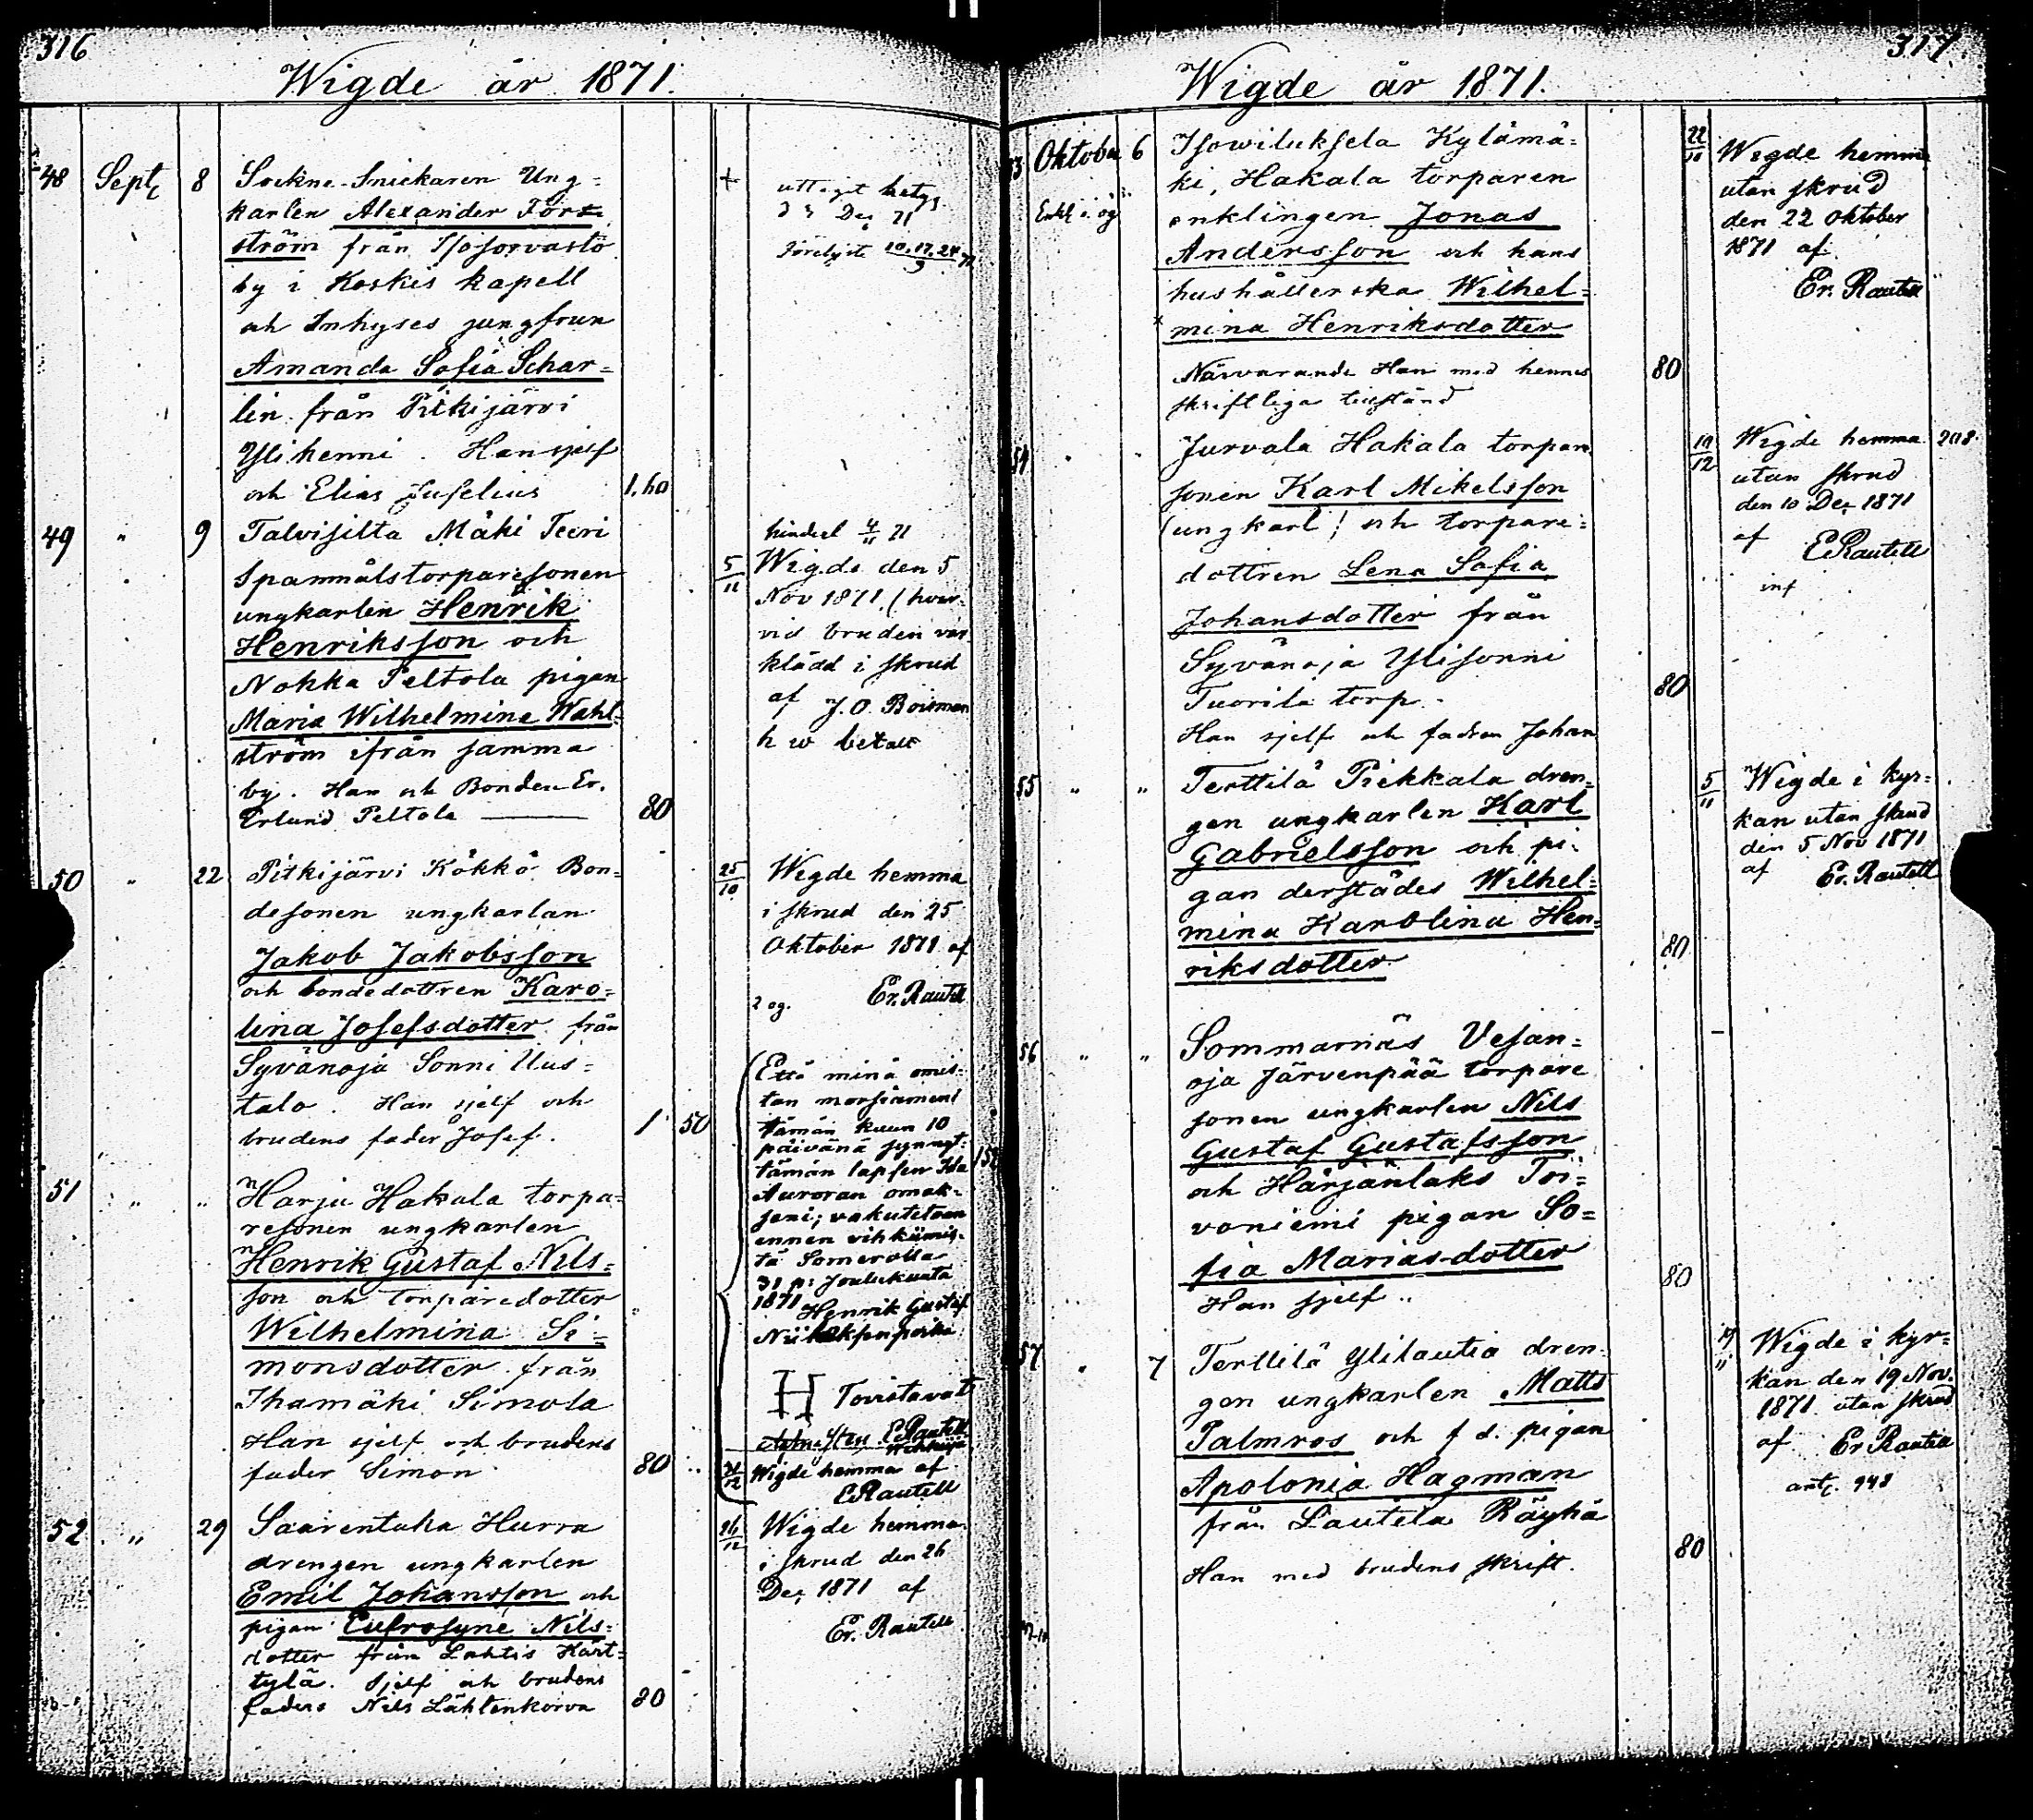 316
Wigde år 1871.
48 Sept 8 Sockne-Snickaren Ung=
karlen Alexander Fors=
ström från Isosorvasto
by i Koskis kapell
och Inhyses jungfrun
Amanda Sofia Schar=
lin från Pitkijärvi
Ylihenni. Han sjelf
och Elias Juselius 1.60
+ uttaget betyg
d 3 Dec 71
49 " 9 Talvisilta Mäki Teeri
Spannmålstorparesonen
ungkarlen Henrik
Henriksson och
Nokka Peltola pigan
Maria Wilhelmina Wahl=
ström ifrån samma
by. Han och Bonden Er.
Erlund Peltola 80
hindersl 4/11 71
5/11 Wigde den 5
Nov 1871, (hvar
vid bruden var
klädd i skrud
af J. O. Boisman
h w betalt
50 " 22 Pitkijärvi Kökkö Bon=
desonen ungkarlen
Jakob Jakobsson
och bondedottren Karo=
lina Josefsdotter från
Syvänoja Sonni Uus=
talo. Han sjelf och
brudens fader Josef. 1 50
25/10 Wigde hemma
i skrud den 25
Oktober 1871 af
Er. Rautell
2 og.
51 " " Harju Hakala torpa=
resonen ungkarlen
Henrik Gustaf Nils=
son och torparedotter
Wilhelmina Si=
monsdotter från
Ihamäki Simola
Han sjelf och brudens
fader Simon 80
Että minä omis=
tan morsiameni
tämän kuun 10
päivänä synnyt=
tämän lapsen Ida
Auroran omak=
seni; vakutetaan
ennen vihkiimis=
tä Somerolla
31 p: Joulukuuta
1871 Henrik Gustaf
Niilaksenpoika
H Toivistavat
E Rautell
31/12 Wigde hemma af
E Rautell
52 " 29 Saarentaka Hurra
drengen ungkarlen
Emil Johansson och
pigan Eufrosyne Nils=
dotter från Lahtis Kärt=
tylä. Sjelf och brudens
faders Nils Lähtenkorva 80
26/12 Wigde hemma
i skrud den 26
Dec 1871 af
Er. Rautell
317
Wigde år 1871.
53 Oktober 6 Isowiluksela Kylämä=
ki, Hakala torparen
enklingen Jonas
Andersson och hans
hushållerska Wilhel=
mina Henriksdotter
Närvarande Han med hennes 80
skriftliga tillstånd
22/10 Wigde hemma
utan skrud
den 22 Oktober
1871 af
Er. Rautell
54 " " Jurvala Hakala torpare
sonen Karl Mikelsson
(ungkarl) och torpare=
dottren Lena Sofia
Johansdotter från
Syvänoja Ylisonni
Tuorila torp. 80
Han sjelf och fadren Johan
10/12 Wigde hemma 208.
utan skrud
den 10 Dec 1871
af E Rautell
inf
55 " " Terttilä Piekkala dren=
gen ungkarlen Karl
Gabrielsson och pi=
gan derstädes Wilhel=
mina Karolina Hen=
riksdotter 80
5/11 Wigde i kyr=
kan utan skrud
den 5 Nov 1871
af Er. Rautell
56 " " Sommarnäs Vesan=
oja Järvenpää torpare
sonen ungkarlen Nils
Gustaf Gustafsson
och Härjänlaks Toi=
voniemi pigan So=
fia Mariasdotter 80
Han sjelf
57 " 7 Terttilä Ylilautia dren=
gen ungkarlen Matts
Palmros och f d. pigan
Apolonia Hagman
från Lautela Räyhä
Han med brudens skrift. 80
19/11 Wigde i kyr=
kan den 19 Nov.
1871 utan skrud
af Er Rautell
ant. 948